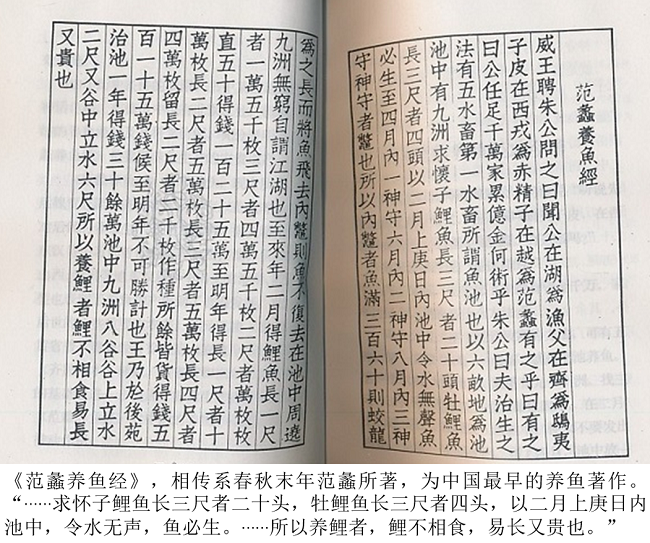 范蠡養魚經
威王聘朱公問之曰聞公在湖爲漁父在齊爲鴟夷
子皮在西戎爲赤精子在越爲范蠡有之乎曰有之
曰公任足千萬家累億金何術乎朱公曰夫治生之
法有五水畜第一水畜所謂魚池也以六畝地爲池
池中有九洲求懷子鯉魚長三尺者二十頭牡鯉魚
長三尺者四頭以二月上庚日內池中令水無聲魚
必生至四月內一神守六月內二神守八月內三神
守神守者鱉也所以內鱉者魚滿三百六十則蛟龍
爲之長而將魚飛去內鱉則魚不復去在池中周遶
九洲無窮自謂江湖也至來年二月得鯉魚長一尺
者一萬五千枚三尺者四萬五千枚二尺者萬枚枚
直五十得錢一百二十五萬至明年得長一尺者十
萬枚長二尺者五萬枚長三尺者五萬枚長四尺者
四萬枚留長二尺者二千枚作種所餘皆貨得錢五
百一十五萬錢候至明年不可勝計也王乃於後苑
治池一年得錢三十餘萬池中九洲八谷谷上立水
二尺又谷中立水六尺所以養鯉者鯉不相食易長
又貴也
《范蠡养鱼经》，相传系春秋末年范蠡所著，为中国最早的养鱼著作。
“……求怀子鲤鱼长三尺者二十头，牡鲤鱼长三尺者四头，以二月上庚日内
池中，令水无声，鱼必生。……所以养鲤者，鲤不相食，易长又贵也。”